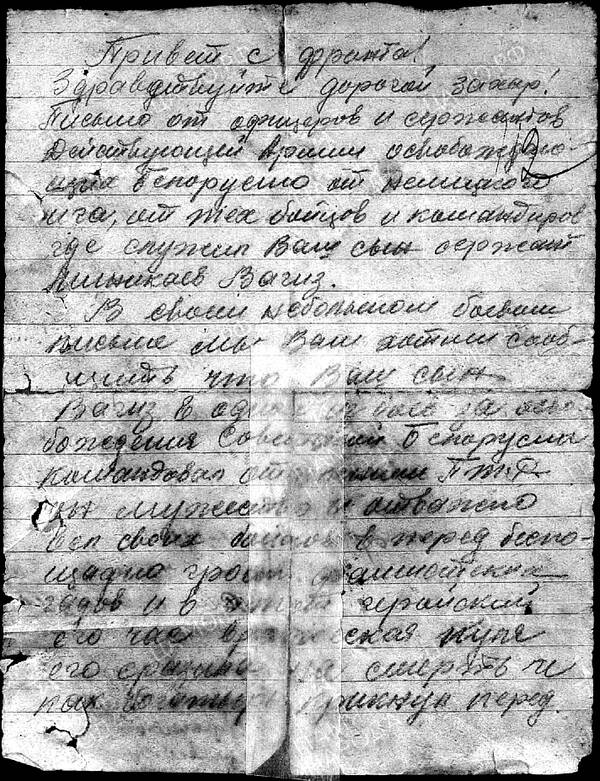 Привет с фронта!
Здравдствуйте дорогой Захар!
Письмо от офицеров и сержантов
Действующей Армии освобождаю-
щих Белорусию от немецкого
ига, от тех бойцов и командиров
где служил Ваш сын сержант
Вагиз.
В своем небольшом боевом
письме мы Вам хотим сооб-
щить что Ваш сын
Вагиз в одном из боев за осво
бождения Советской Белорусии
командовал ПТР
он мужество и отважно
вел своих бойцов в перед беспо-
щадно громя фашистских
гадов и в этот геройский
его час вражеская пуля
его сразила на смерть и
как богатырь крикнул перед